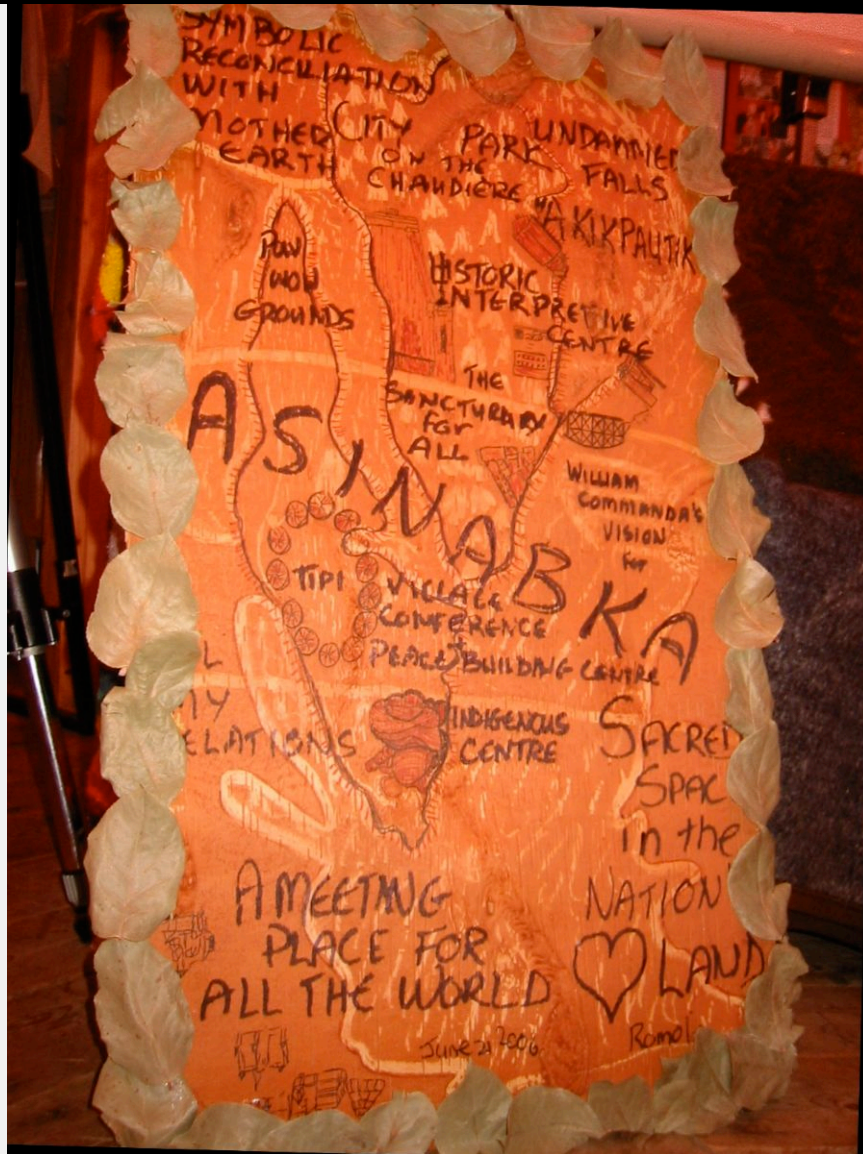 SYMBOLIC
RECONCILIATION
WITH
MOTHER
EARTH
CITY
PARK
ON THE
CHAUDIÈRE
UNDAMMED
FALLS
AKIKPAUTIK
POW
WOW
GROUNDS
HISTORIC
INTERPRETIVE
CENTRE
THE
SANCTURARY
for
ALL
ASINABKA
WILLIAM
COMMANDA'S
VISION
for
TIPI
VILLAGE
CONFERENCE
+
PEACE BUILDING CENTRE
L
MY
ELATIONS
INDIGENOUS
CENTRE
SACRED
SPAC
in the
NATION
LAND
A MEETING
PLACE FOR
ALL THE WORLD
June 21 2006
Romol